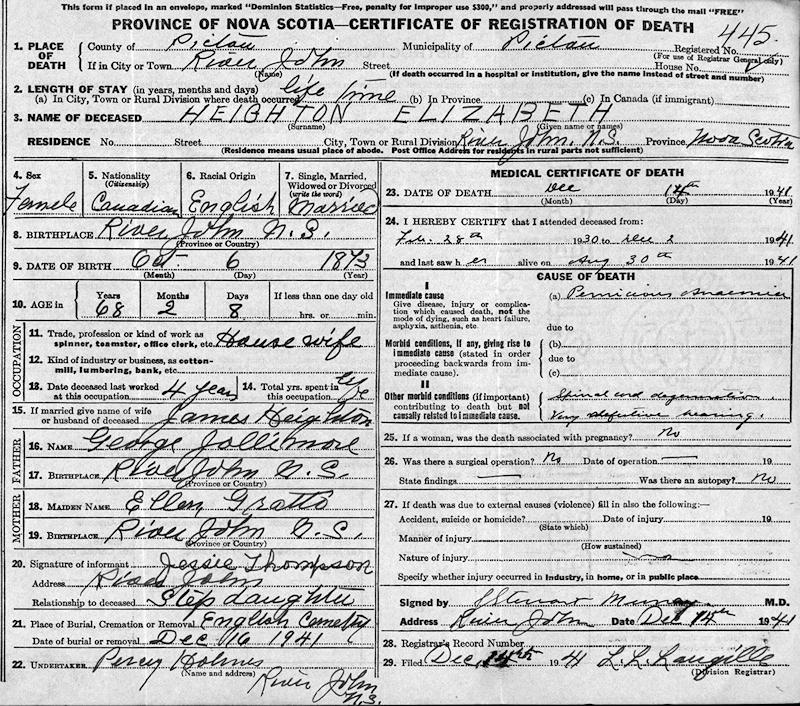 This form if placed in an envelope, marked "Dominion Statistics—Free, penalty for improper use $300," and properly addressed will pass through the mail "FREE"
PROVINCE OF NOVA SCOTIA—CERTIFICATE OF REGISTRATION OF DEATH
1. PLACE OF DEATH
County of Pictou Municipality of Pictou Registered No. 445
(For use of Registrar General only)
If in City or Town River John Street House No.
(Name) (If death occurred in a hospital or institution, give the name instead of street and number)
2. LENGTH OF STAY (in years, months and days)
(a) In City, Town or Rural Division where death occurred life time (b) In Province (c) In Canada (if immigrant)
3. NAME OF DECEASED HEIGHTON ELIZABETH
(Surname) (Given name or names)
RESIDENCE No. Street City, Town or Rural Division River John. N.S. Province Nova Scotia
(Residence means usual place of abode. Post Office Address for residents in rural parts not sufficient)
4. Sex Female
5. Nationality (Citizenship) Canadian
6. Racial Origin English
7. Single, Married, Widowed or Divorced (write the word) Married
8. BIRTHPLACE River John N.S.
(Province or Country)
9. DATE OF BIRTH Oct 6 1873
(Month) (Day) (Year)
10. AGE in Years 68 Months 2 Days 8 If less than one day old hrs. or min.
OCCUPATION
11. Trade, profession or kind of work as spinner, teamster, office clerk, etc. House wife
12. Kind of industry or business, as cotton-mill, lumbering, bank, etc.
13. Date deceased last worked at this occupation 4 years
14. Total yrs. spent in this occupation life
15. If married give name of wife or husband of deceased James Heighton
FATHER
16. NAME George Jollimore
17. BIRTHPLACE River John N.S.
(Province or Country)
MOTHER
18. MAIDEN NAME Ellen Gratto
19. BIRTHPLACE River John N.S.
(Province or Country)
20. Signature of informant Jessie Thompson
Address River John
Relationship to deceased Step daughter
21. Place of Burial, Cremation or Removal English Cemetery
Date of burial or removal Dec 16 1941
22. UNDERTAKER Percy Holmes
(Name and address) River John N.S.
MEDICAL CERTIFICATE OF DEATH
23. DATE OF DEATH Dec 14th 1941
(Month) (Day) (Year)
24. I HEREBY CERTIFY that I attended deceased from:
Feb. 28th 1930 to Dec 2 1941
and last saw h er alive on Aug 30th 1941
CAUSE OF DEATH
I
Immediate cause
Give disease, injury or complication which caused death, not the mode of dying, such as heart failure, asphyxia, asthenia, etc.
(a) Pernicious Anaemia
due to
Morbid conditions, if any, giving rise to immediate cause (stated in order proceeding backwards from immediate cause).
(b)
due to
(c)
II
Other morbid conditions (if important) contributing to death but not causally related to immediate cause.
Spinal cord degeneration.
Very defective hearing.
25. If a woman, was the death associated with pregnancy? No
26. Was there a surgical operation? No Date of operation —
State findings — Was there an autopsy? No
27. If death was due to external causes (violence) fill in also the following:—
Accident, suicide or homicide? Date of injury 19
(State which)
Manner of injury
(How sustained)
Nature of injury
Specify whether injury occurred in industry, in home, or in public place
Signed by Murray M.D.
Address River John Date Dec 14th 1941
28. Registrar's Record Number
29. Filed Dec. 14th 1941 L. L. Langille
(Division Registrar)